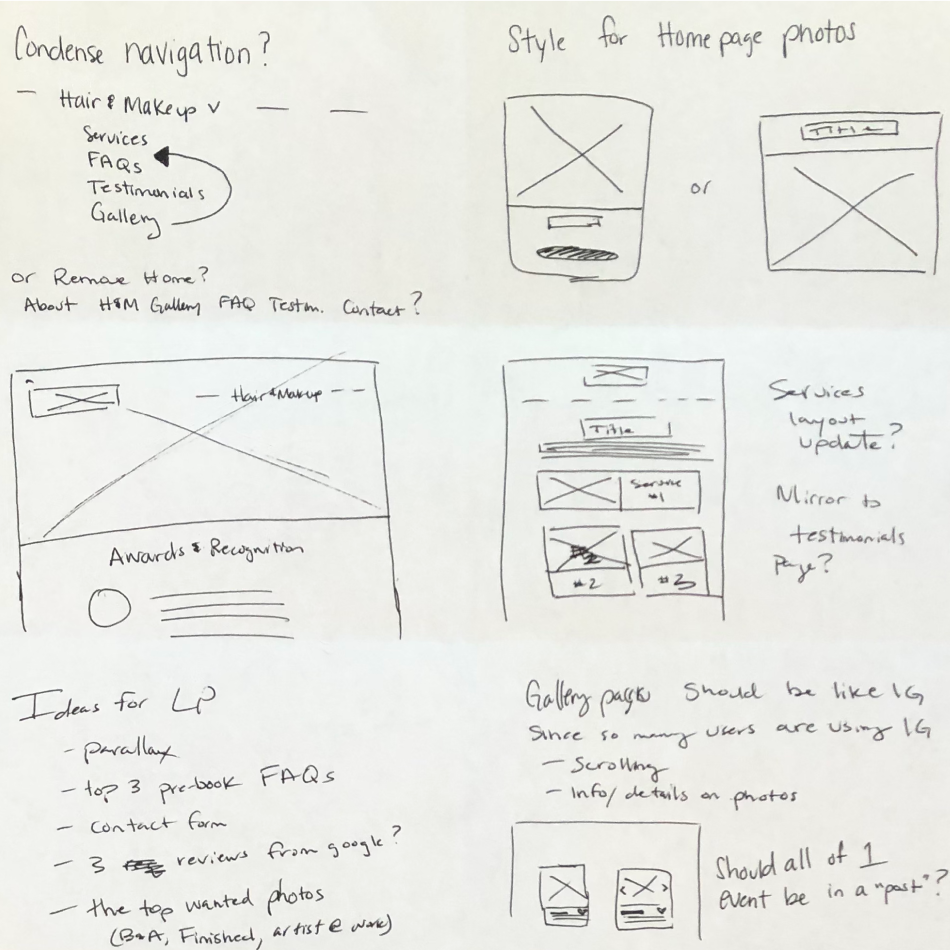 Condense navigation?
— Hair & Makeup v — —
Services
FAQs
Testimonials
Gallery
or Remove Home?
About H&M Gallery FAQ Testim. Contact?
Style for Homepage photos
or
Title
— Hair & Makeup - -
Awards & Recognition
Title
Service
#1
#2
#3
Services
layout
update?
Mirror to
testimonials
page?
Ideas for LP
- parallax
- top 3 pre-book FAQs
- contact form
- 3 reviews from google?
- the top wanted photos
(B&A, Finished, artist @ work)
Gallery page Should be like IG
Since so many users are using IG
- Scrolling
- Info/details on photos
Should all of 1
event be in a "post"?